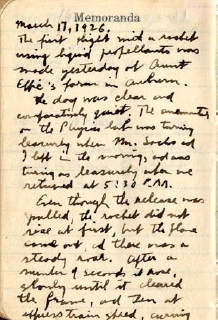 Memoranda
March 17, 1926.
The first flight with a rocket
using liquid propellants was
made yesterday at Aunt
Effie's farm in Auburn.
The day was clear and
comparatively quiet. The anemometer
on the Physics lab was turning
leisurely when Mr. Sachs and
I left in the morning, and was
turning as leisurely when we
returned at 5:30 P.M.
Even though the release was
pulled, the rocket did not
rise at first, but the flame
came out, and there was a
steady roar. After a
number of seconds it rose,
slowly until it cleared
the frame, and then at
express train speed, curving